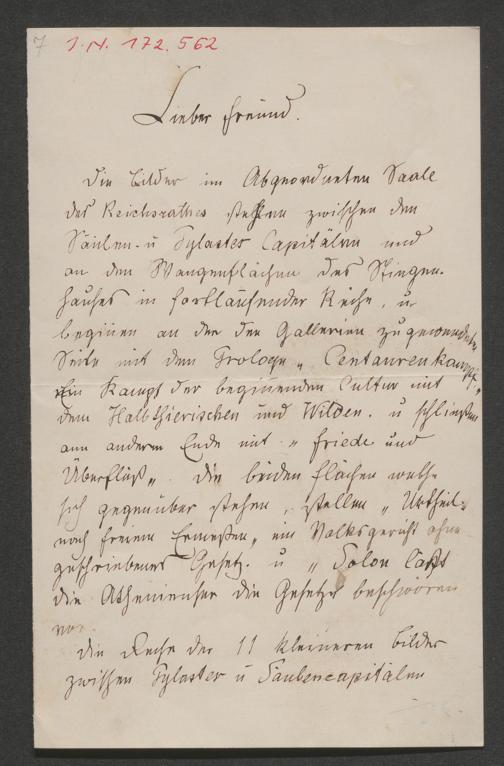 7 J.N. 172.562
Lieber Freund.
Die Bilder im Abgeordneten Saale
des Reichsrathes stehen zwischen den
Säulen- u Pylaster Capitälen und
an den Wangenflächen des Stiegen-
hauses in fortlaufender Reihe, u
beginnen an der den Gallerien zugewendeten
Seite mit dem Prologe „Centaurenkampf"
Ein Kampf der beginnenden Cultur mit
dem Halbthierischen und Wilden. u schließen
am anderen Ende mit „Friede und
Überfluß". Die beiden Flächen welche
sich gegenüber stehen, stellen „Urtheil
nach freiem Ermeßen" ein Volksgericht ohne
geschriebenes Gesetz. u „Solon läßt
die Athenienser die Gesetze beschwören
vor.
Die Reihe der 11 kleineren Bilder
zwischen Pylaster u Säulencapitälen